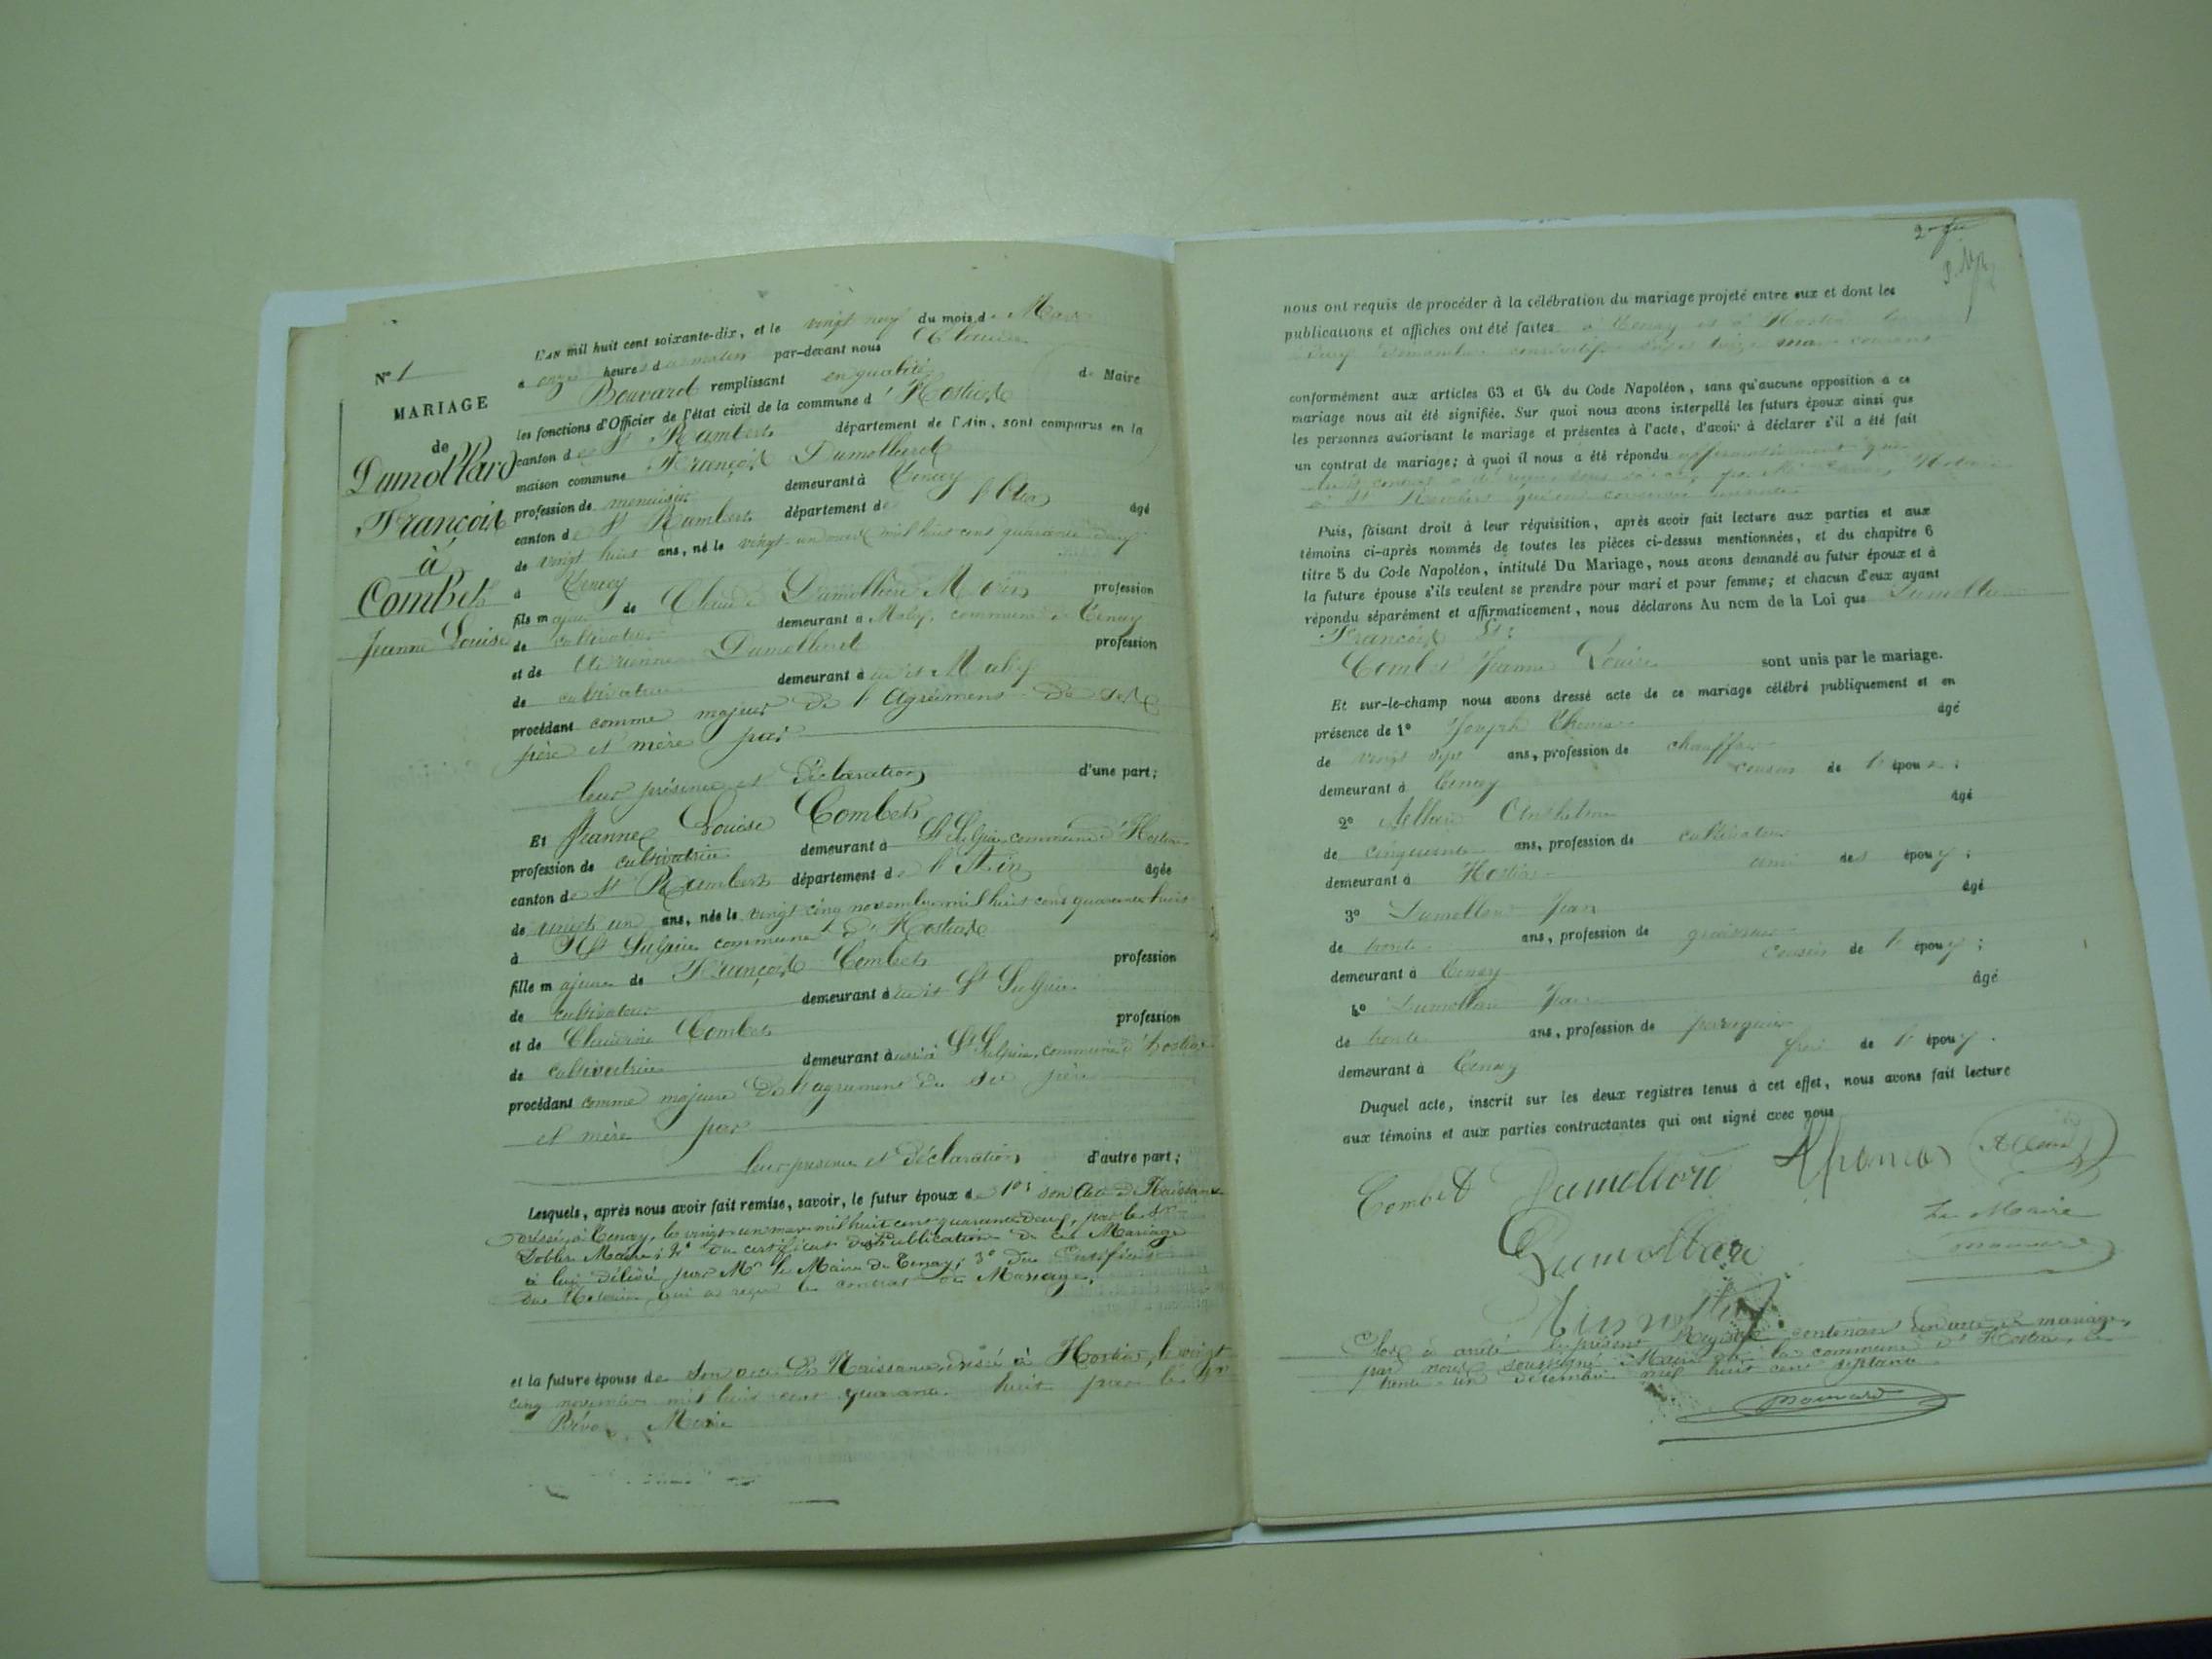 N° 1
MARIAGE
de
Dumollard
François
à
Combet
Jeanne Louise
L'AN mil huit cent soixante-dix, et le vingt neuf du mois de Mars
à onze heures du matin par-devant nous Claude
Bouvard remplissant en qualité de Maire
les fonctions d'Officier de l'état civil de la commune d'Hostiaz
canton de St Rambert département de l'Ain, sont comparus en la
maison commune François Dumollard
profession de menuisier demeurant à Tenay
canton de St Rambert département de l'Ain âgé
de vingt huit ans, né le vingt un mars mil huit cent quarante deux
à Tenay
fils majeur de Claude Dumollard Morin profession
de cultivateur demeurant à Malix, commune de Tenay
et de Dumollard profession
de cultivatrice demeurant à
procédant comme majeur de l'agrément de ses
père et mère par
leur présence et déclaration d'une part;
Et Jeanne Louise Combet
profession de cultivatrice demeurant à St Sulpice, commune d'Hostiaz
canton de St Rambert département de l'Ain âgée
de vingt un ans, née le vingt cinq novembre mil huit cent quarante huit
à St Sulpice commune d'Hostiaz
fille majeure de François Combet profession
de cultivateur demeurant à St Sulpice
et de Claudine Combet profession
de cultivatrice demeurant à St Sulpice, commune d'hostiaz
procédant comme majeure de l'agrément de père
et mère par
leur présence et déclaration d'autre part;
Lesquels, après nous avoir fait remise, savoir, le futur époux de 1° son acte de Naissance
dressé à Tenay, le vingt un mars mil huit cent quarante deux, par le Sr
Maire; 2° du certificat de Publication de ce Mariage
à lui délivré par Mr le Maire de Tenay; 3° du certificat
du Notaire qui a reçu le contrat de Mariage.
et la future épouse de son acte de Naissance, dressé à Hostiaz, le vingt
cinq novembre mil huit cent quarante huit par le Sr
Maire
nous ont requis de procéder à la célébration du mariage projeté entre eux et dont les
publications et affiches ont été faites à Tenay et à Hostiaz
conformément aux articles 63 et 64 du Code Napoléon, sans qu'aucune opposition à ce
mariage nous ait été signifiée. Sur quoi nous avons interpellé les futurs époux ainsi que
les personnes autorisant le mariage et présentes à l'acte, d'avoir à déclarer s'il a été fait
un contrat de mariage; à quoi il nous a été répondu affirmativement que
Puis, faisant droit à leur réquisition, après avoir fait lecture aux parties et aux
témoins ci-après nommés de toutes les pièces ci-dessus mentionnées, et du chapitre 6
titre 5 du Code Napoléon, intitulé Du Mariage, nous avons demandé au futur époux et à
la future épouse s'ils veulent se prendre pour mari et pour femme; et chacun d'eux ayant
répondu séparément et affirmativement, nous déclarons Au nom de la Loi que Dumollard
François Et
Combet Jeanne Louise sont unis par le mariage.
Et sur-le-champ nous avons dressé acte de ce mariage célébré publiquement et en
présence de 1° Joseph âgé
de vingt sept ans, profession de
demeurant à Tenay cousin de l'époux;
2° âgé
de cinquante ans, profession de cultivateur
demeurant à Hostiaz ami des époux;
3° Dumollard Jean âgé
de trente ans, profession de
demeurant à Tenay cousin de l'époux;
4° Dumollard Jean âgé
de trente ans, profession de
demeurant à Tenay de l'époux.
Duquel acte, inscrit sur les deux registres tenus à cet effet, nous avons fait lecture
aux témoins et aux parties contractantes qui ont signé avec nous
Combet Dumollard Thomas
Dumollard
Le Maire
Bouvard
Clos et arrêté le présent Registre contenant un acte de mariage,
par nous soussigné Maire de la commune d'Hostiaz, le
trente-un décembre mil huit cent septante
Bouvard